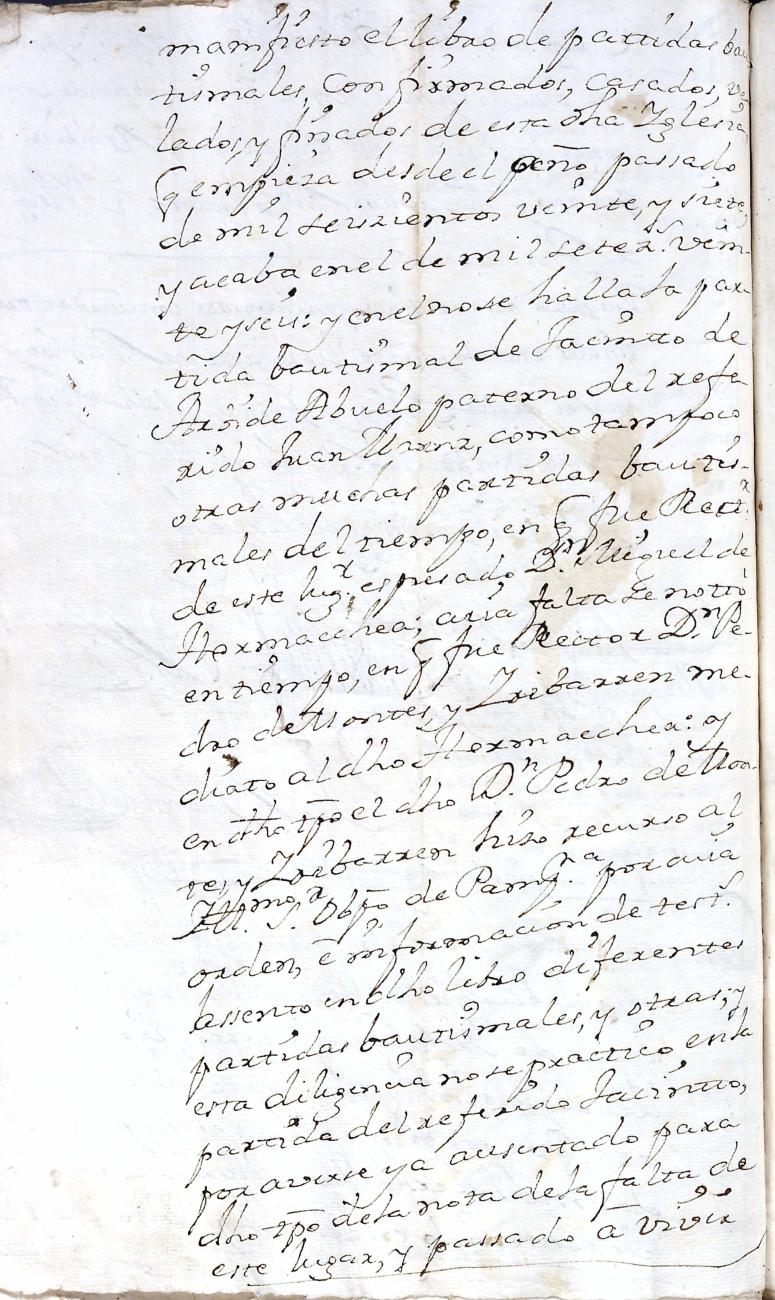 manifiesto el libro de partidas bau
tismales, Confirmados, Casados, ve
lados, y finados de esta dha Yglesia,
q empieza desde el año passado
de mil seiszientos veinte, y siete,
y acaba en el de mil setez.s vein-
te y seis: y en el no se halla la par
tida bautismal de Jacintto de
Arside Abuelo paterno del refe
rido Juan Mrnz, como tampoco
otras muchas partidas bautis-
males del tiempo, en q fue Rect.r
de este lug.r espresado D.n Miguel de
Hormaechea; cuia falta se nottò
en tiempo, en q fue Rector D.n Pe-
dro de Montes, y Yribarren me-
diato al dho Hormaechea: y
en dho tpō el dho D.n Pedro de Mon-
tes, y Yribarren hizo recurso al
Ill.mo S.r Obpō de Pamp.na por cuia
orden, è informacion de test.s
assento en dho libro diferentes
partidas bautismales, y otras; y
esta diligencia no se practicò en la
partida del referido Jacintto,
por averse ya ausentado para
dho tpō de la nota de la falta de
este lugar, y passado à vivir